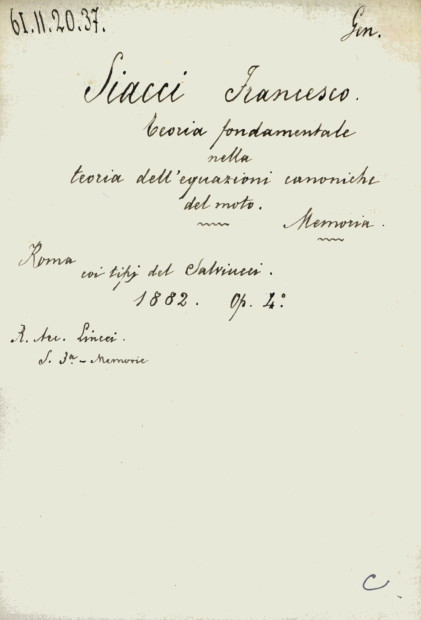 61.11.20.37.
Gen.
Siacci Francesco.
teoria fondamentale
nella
teoria dell'equazioni canoniche
del moto.
Memoria.
Roma
coi tipi del Salviucci.
1882. Op. 4°
R. Acc. Lincei.
S. 3ª - Memorie
C